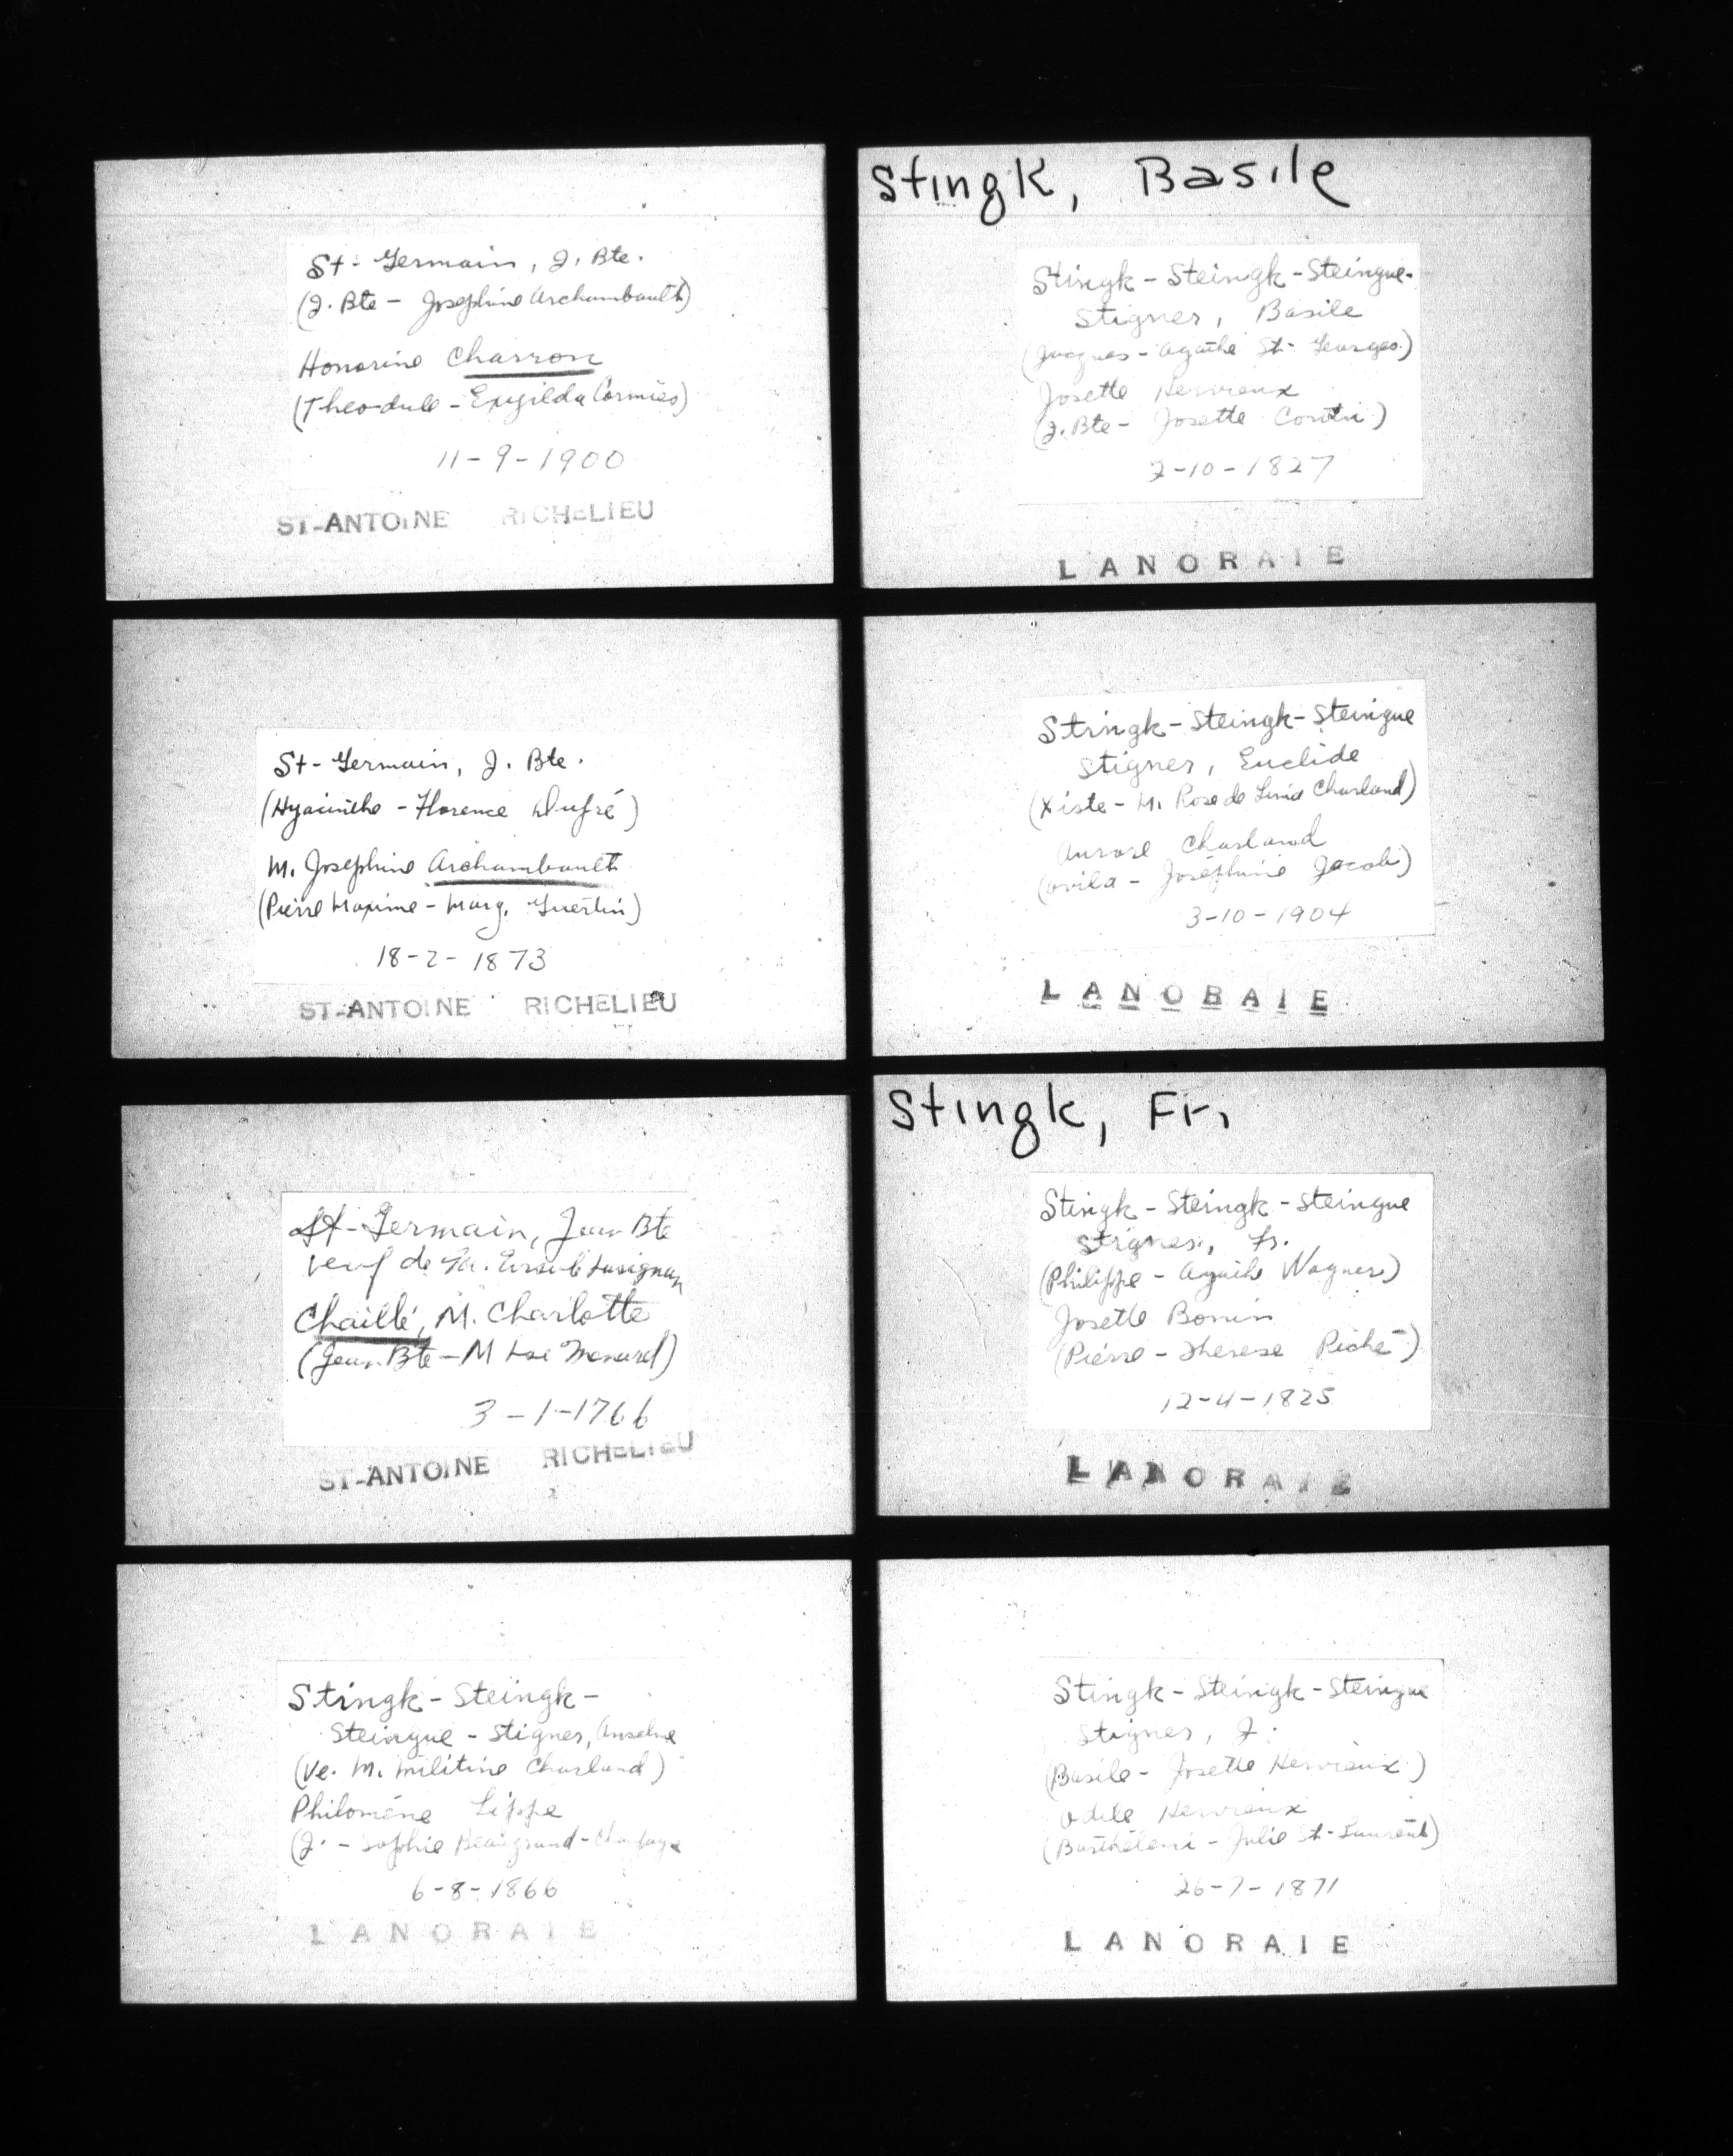 St-Germain, J. Bte.
(J. Bte - Josephine Archambault)
Honorine Charron
(Theodule - Exzilda Cormier)
11-9-1900
ST-ANTOINE RICHELIEU
St-Germain, J. Bte.
(Hyacinthe - Florence Dupré)
M. Josephine Archambault
(Pierre Maxime - Marg. Guertin)
18-2-1873
ST-ANTOINE RICHELIEU
St-Germain, Jean Bte
veuf de Ursule Lusignan
Chaillé, M. Charlotte
(Jean Bte - M Menard)
3-1-1766
ST-ANTOINE RICHELIEU
Stingk - Steingk -
Steingue - Stigner, Anselme
(Ve. M. Militine Charland)
Philomène Lippe
(J. - Sophie Beaugrand-Champagne
6-8-1866
LANORAIE
Stingk, Basile
Stingk - Steingk - Steingue-
Stigner, Basile
(Jacques - Agathe St-Georges)
Josette Hervieux
(J. Bte - Josette Coutu)
2-10-1827
LANORAIE
Stringk - Steingk - Steingue
Stigner, Euclide
(Xiste - M. Rose de Lima Charland)
Aurore Charland
(Ovila - Joséphine Jacob)
3-10-1904
LANORAIE
Stingk, Fr.
Stingk - Steingk - Steingue
Stigner, Fr.
(Philippe - Agathe Wagner)
Josette Bonin
(Pierre - Therese Piché)
12-4-1825
LANORAIE
Stingk - Steingk - Steingue
Stigner, J.
(Basile - Josette Hervieux)
Odile Hervieux
(Barthélemi - Julie St-Laurent)
26-7-1871
LANORAIE